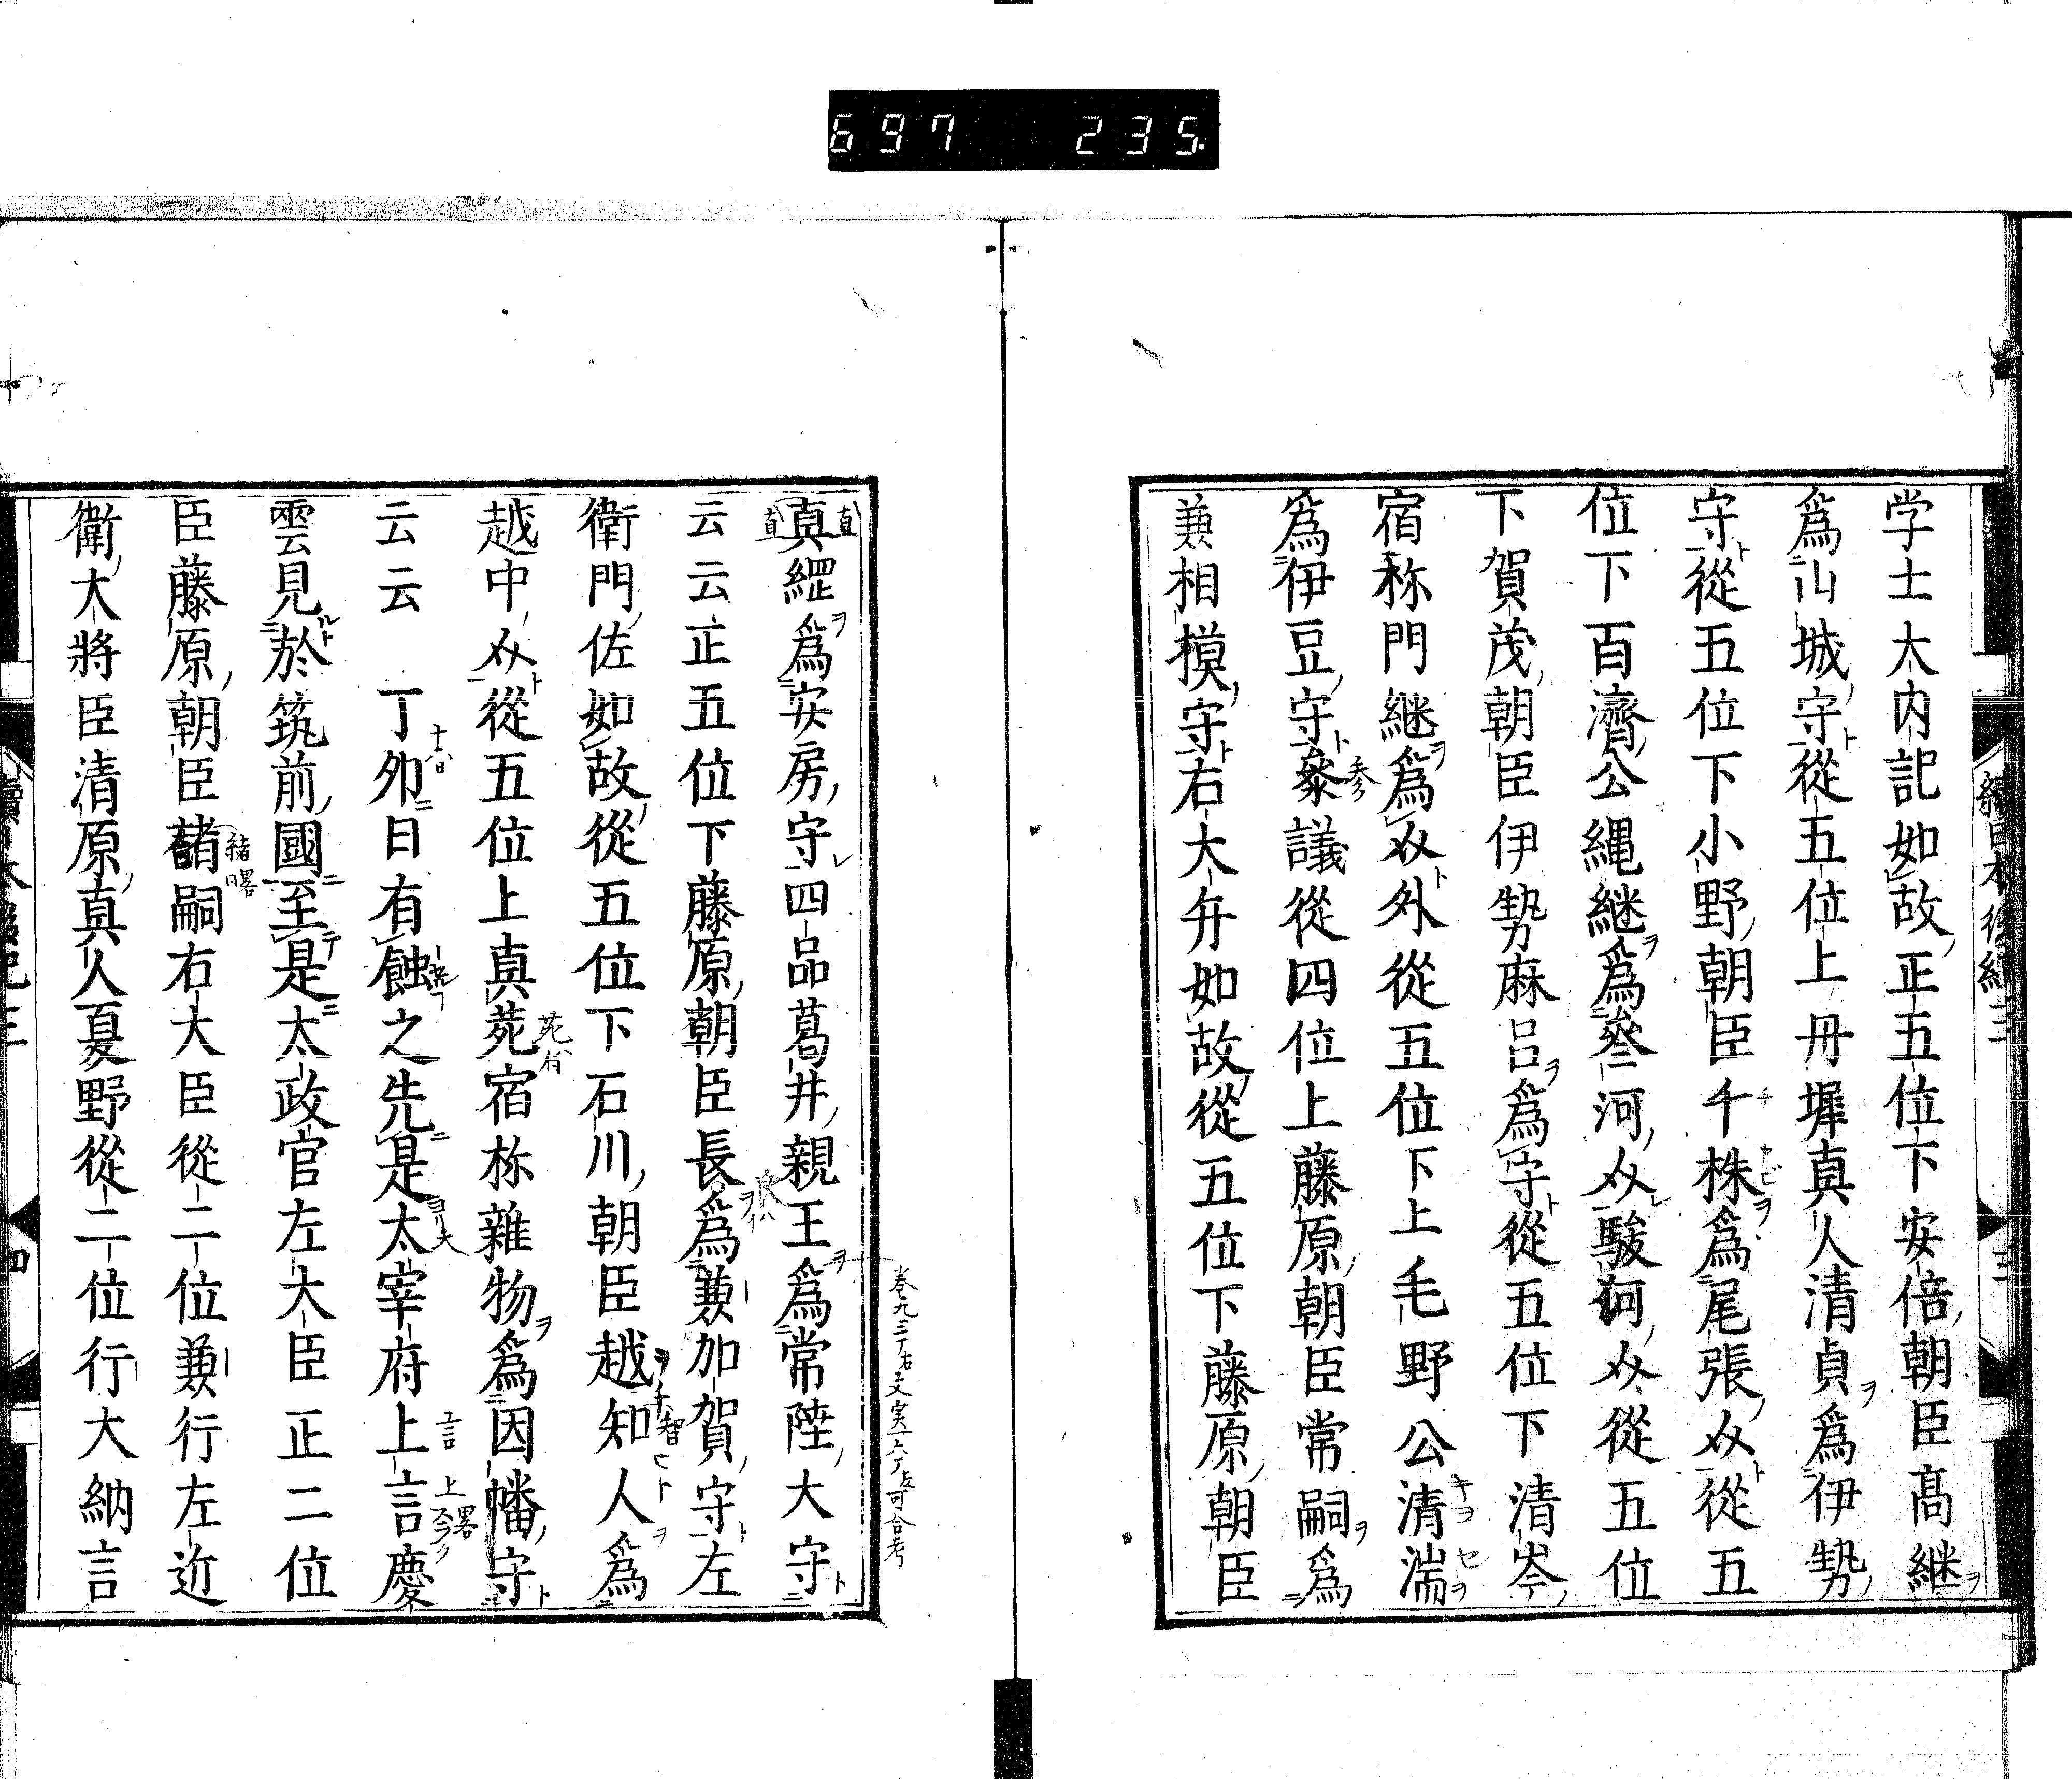 697 235.
学士大内記如故正五位下安倍朝臣髙継
爲山城守從五位上丹墀真人清貞爲伊勢
守從五位下小野朝臣千株爲尾張从從五
位下百濟公縄継爲叅河从駿河从從五位
下賀茂朝臣伊勢麻呂爲守從五位下清岑
宿祢門継爲从外從五位下上毛野公清湍
爲伊豆守叅議從四位上藤原朝臣常嗣爲
兼相模守右大弁如故從五位下藤原朝臣
真縄爲安房守四品葛井親王爲常陸大守
云云正五位下藤原朝臣長爲兼加賀守左
衛門佐如故從五位下石川朝臣越知人爲
越中从從五位上真菀宿祢雜物爲因幡守
云云 丁卯日有蝕之先是太宰府上言慶
雲見於筑前國至是太政官左大臣正二位
臣藤原朝臣諸嗣右大臣從二位兼行左近
衛大將臣清原真人夏野從二位行大納言